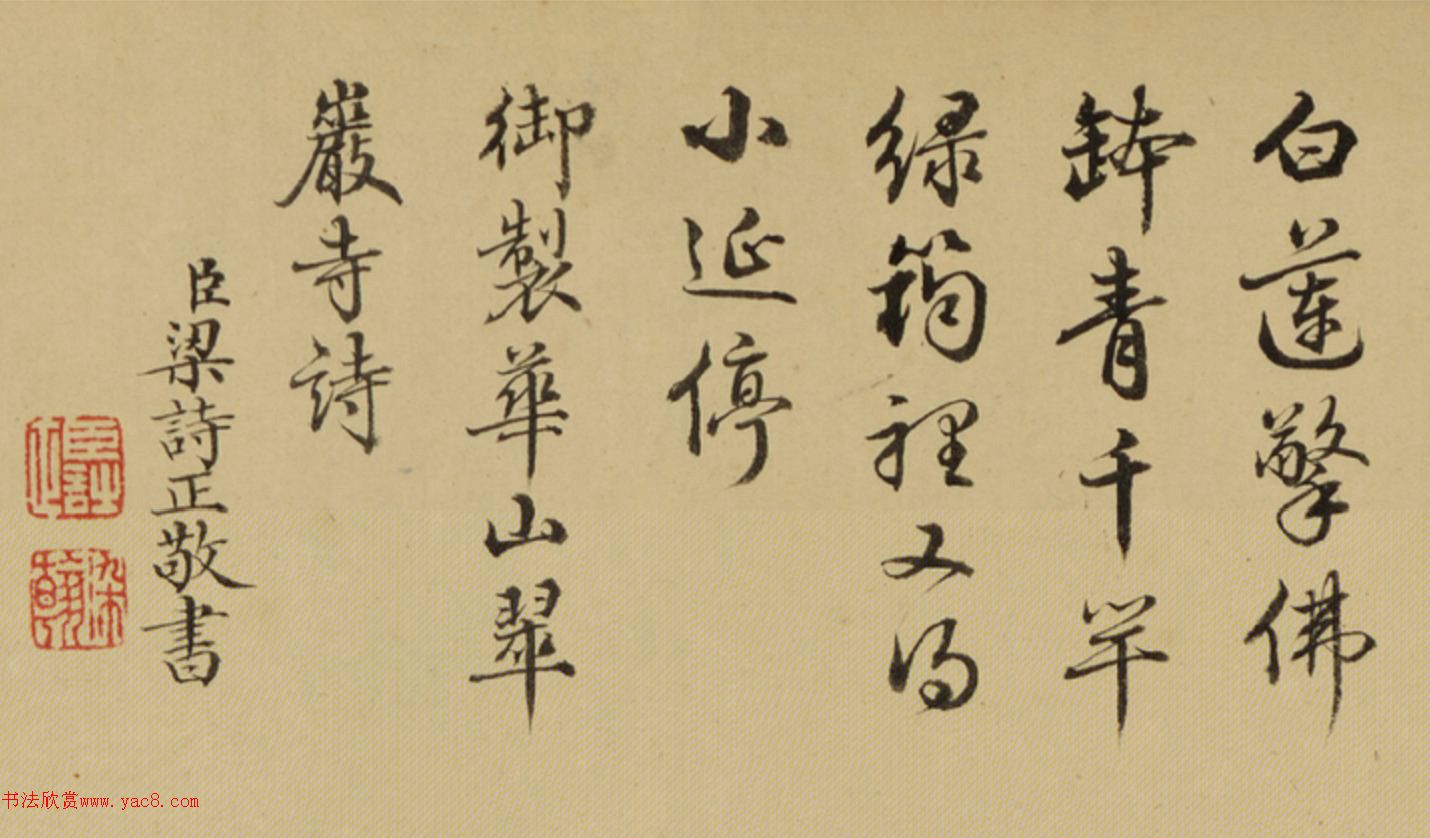 白蓮擎佛
鉢青千竿
緑筠裡又得
小延停
御製華山翠
巖寺詩
臣梁詩正敬書
书法欣赏www.yac8.com